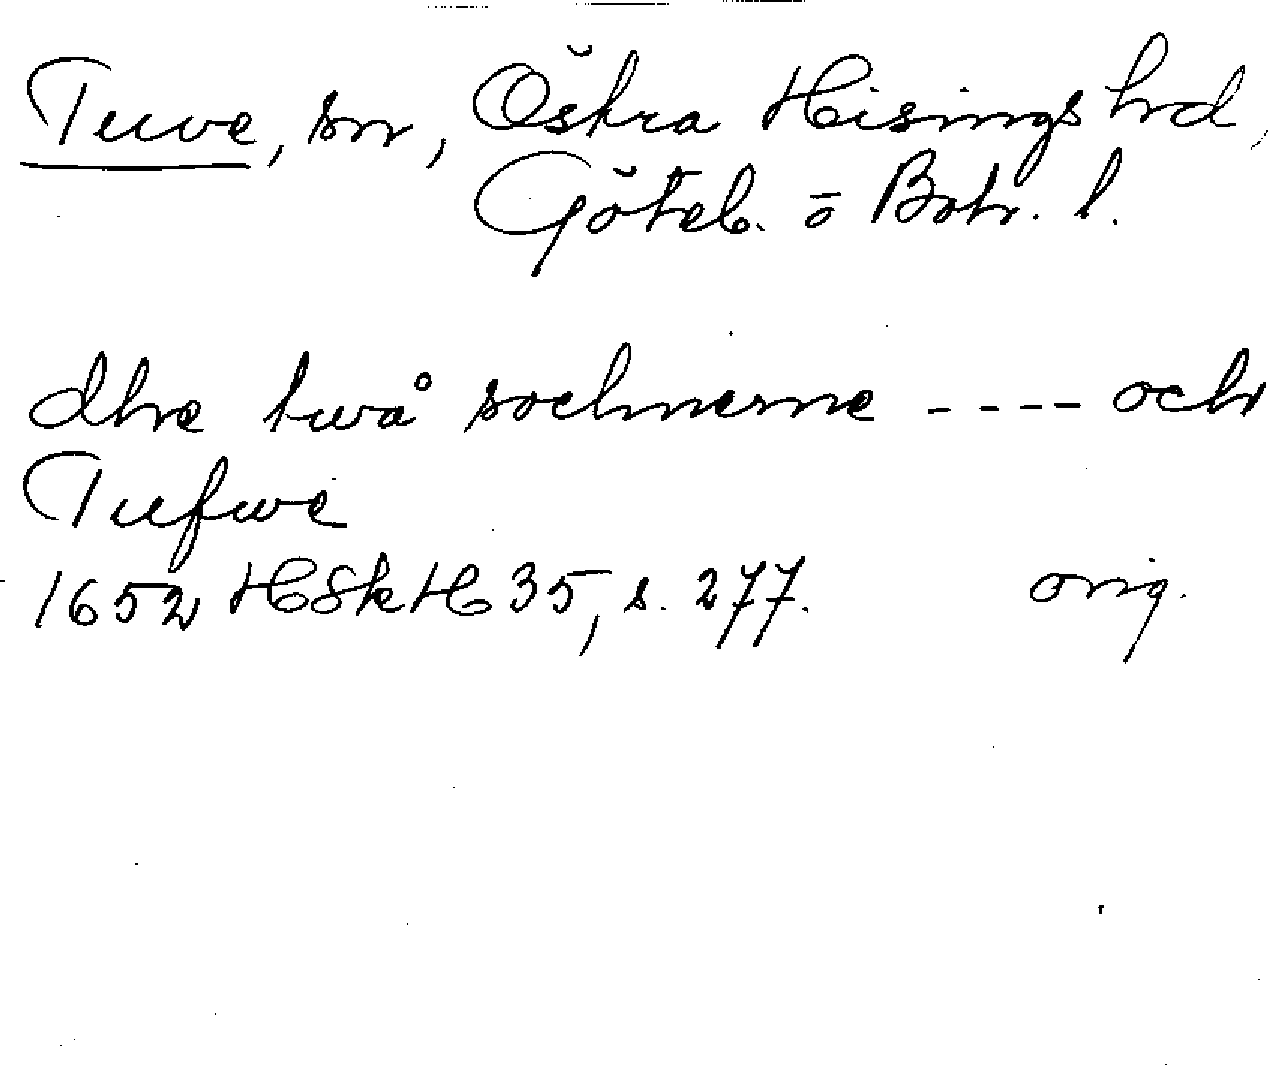 Tuve, sn, Östra Hisings hrd,
Göteb. o Boh. l.
dhe twå sochnerne ---- och
Tufwe
1652 HSkH 35, s. 277. orig.